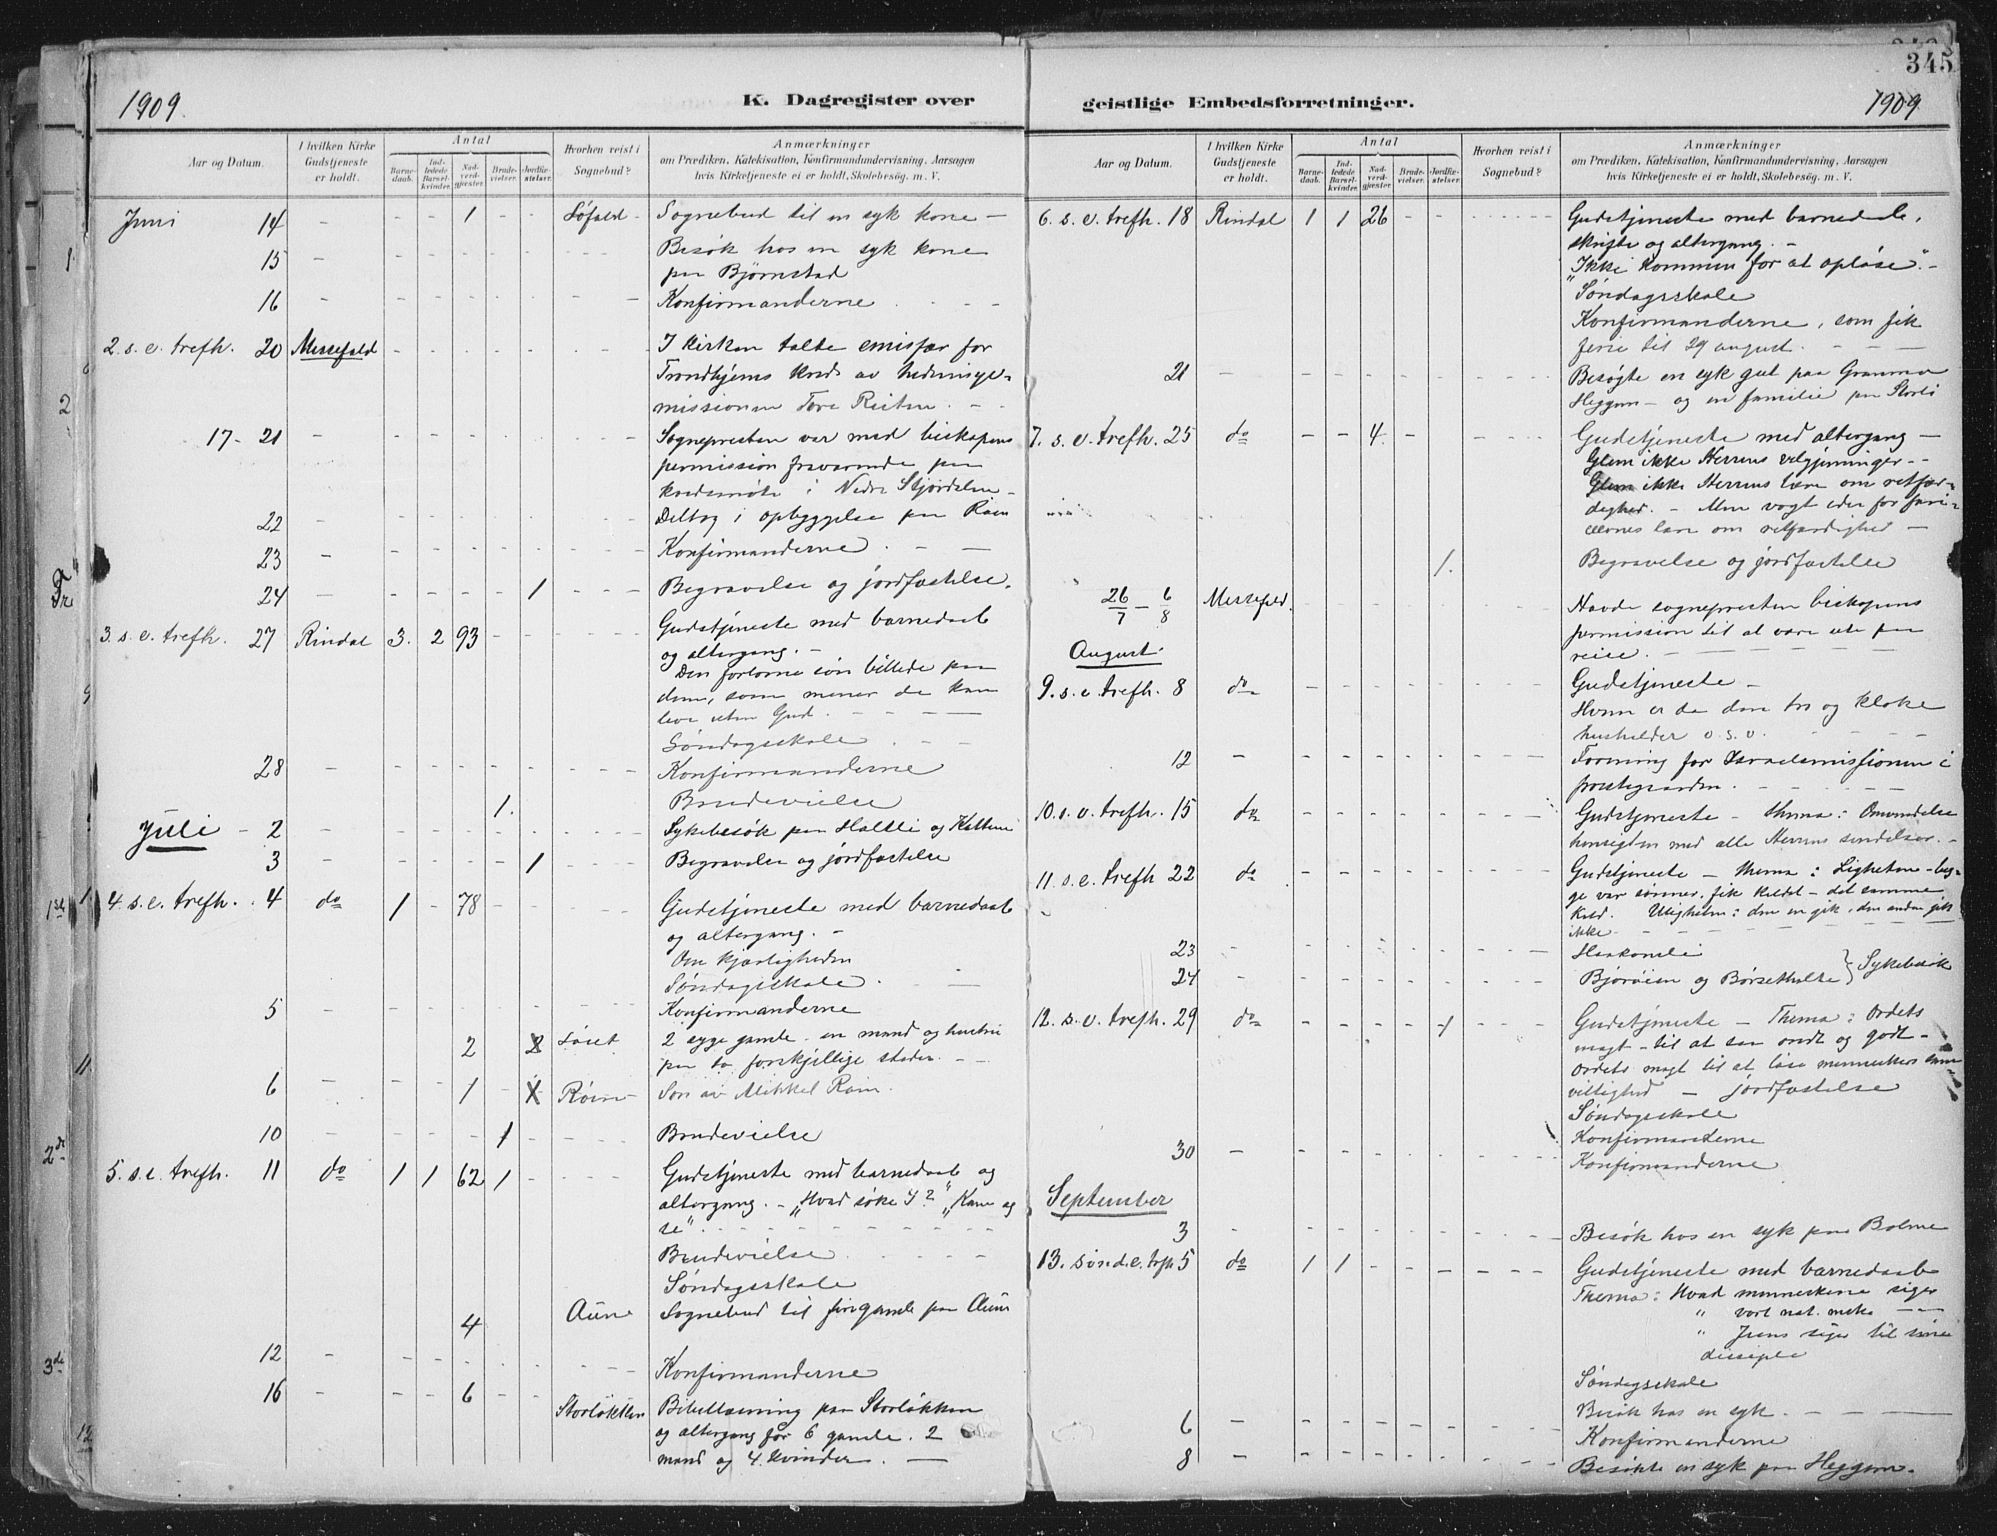 345
1909.
K. Dagregister over
geistlige Embedsforretninger.
1909
Aar og Datum.
I hvilken Kirke Gudstjeneste er holdt.
Antal
Barnedaab.
Indledede Barselkvinder.
Nadverdgjester.
Brudevielser.
Jordfæstelser.
Hvorhen reist i Sognebud?
Anmærkninger
om Prædiken, Katekisation, Konfirmandundervisning, Aarsagen
hvis Kirketjeneste ei er holdt, Skolebesøg. m. V.
Juni 14 - - - 1 - - Løfald - Sognebud til en syk kone -
15 - Besøk hos en syk kone
paa Bjørnstad
16 - Konfirmanderne
2. s. e. trefh. 20 Messefald I kirken talte emissær for
Trondhjems kreds av hedninge-
missionen Tore
17 - 21 - Sognepresten var med biskopens
permission fraværende paa
kredsmøte i Nedre Stjørdalen -
22 - Deltog i opbyggelse paa Røen
23 - Konfirmanderne
24 - 1 Begravelse og jordfæstelse.
3. s. e. trefh. 27 Rindal 3. 2 93 - Gudstjeneste med barnedaab
og altergang. -
Den fortorne søn billede paa
dem, som mener de kan
leve uten Gud.
Søndagsskole
28 - Konfirmanderne
1. Brudevielse
Juli - 2 - Sykebesøk paa Haltli og
3 - 1 Begravelse og jordfæstelse
4. s. e. trefh. 4 do 1 - 78 - Gudstjeneste med barnedaab
og altergang. -
Om kjærligheden
Søndagsskole.
5 - Konfirmanderne
2 Løset 2 syge gamle - en mand og hustru
paa to forskjellige steder. -
6 - 1 - X Røen - Søn av Mikkel Røen.
10 - 1 Brudevielse
5. s. e. trefh. 11 do 1 1 62 1 - Gudstjeneste med barnedaab og
altergang. - "Hvad søke I?" "Kom og
se".
Brudevielse
Søndagsskole
4 Aune Sognebud til fire gamle paa Aune
12 - Konfirmanderne
16 - - 6 - - Storløkken Bibellæsning paa Storløkken
og altergang for 6 gamle. 2
mænd og 4 kvinder. -
Aar og Datum.
I hvilken Kirke Gudstjeneste er holdt.
Antal
Barnedaab.
Indledede Barselkvinder.
Nadverdgjester.
Brudevielser.
Jordfæstelser.
Hvorhen reist i Sognebud?
Anmærkninger
om Prædiken, Katekisation, Konfirmandundervisning, Aarsagen
hvis Kirketjeneste ei er holdt, Skolebesøg. m. V.
6. s. e. trefh. 18 Rindal 1 1 26 - - Gudstjeneste med barnedaab,
skrifte og altergang. -
"Ikke kommen for at opløse". -
Søndagsskole
Konfirmanderne, som fik
ferie til 29 august.
21 - Besøgte en syk gut paa
Heggem - og en familie paa Storlø
7. s. e. trefh. 25 do - - 4. - Gudstjeneste med altergang -
Glem ikke Herrens velgjerninger -
Glem ikke Herrens lære om retfær-
dighed. - Men vogt eder for fari-
sæernes lære om retfærdighed -
1. Begravelse og jordfæstelse
26/7 - 6/8 Messefald. Havde sognepresten biskopens
permission til at være ute paa
reise. -
August
9. s. e. trefh. 8 do Gudstjeneste -
Hvem er da den tro og kloke
husholder o. s. v.
12 - Forening for Israelsmissionen i
prestegaarden.
10. s. e. trefh. 15 do Gudstjeneste - thema: Omvendelse
hensigten med alle Herrens sendelser. -
11. s. e. trefh 22 do Gudstjeneste - Thema: Ligheten - beg-
ge var sønner, fik kaldet - det samme
kald. Uligheten: den en gik, den anden gik
ikke
23 - Haakonsli
24 - Bjørøien og Børsetholte } Sykebesøk
12. s. e. trefh. 29 do 1 Gudstjeneste - Thema: Ordets
magt - til at saa ondt og godt -
Ordets magt til at løse menneskers
villighed - Jordfæstelse
Søndagsskole
Konfirmanderne
30 - Konfirmanderne
September
3 - Besøk hos en syk paa Bolme
13. sønd. e. trefh. 5 do 1 1 - Gudstjeneste med barnedaab
Thema: Hvad menneskene siger
" vort nat.
" Jesus siger til sine
disciple
Søndagsskole
Besøk hos en syk.
6 - Konfirmanderne
8 - Besøkte en syk paa Heggem.